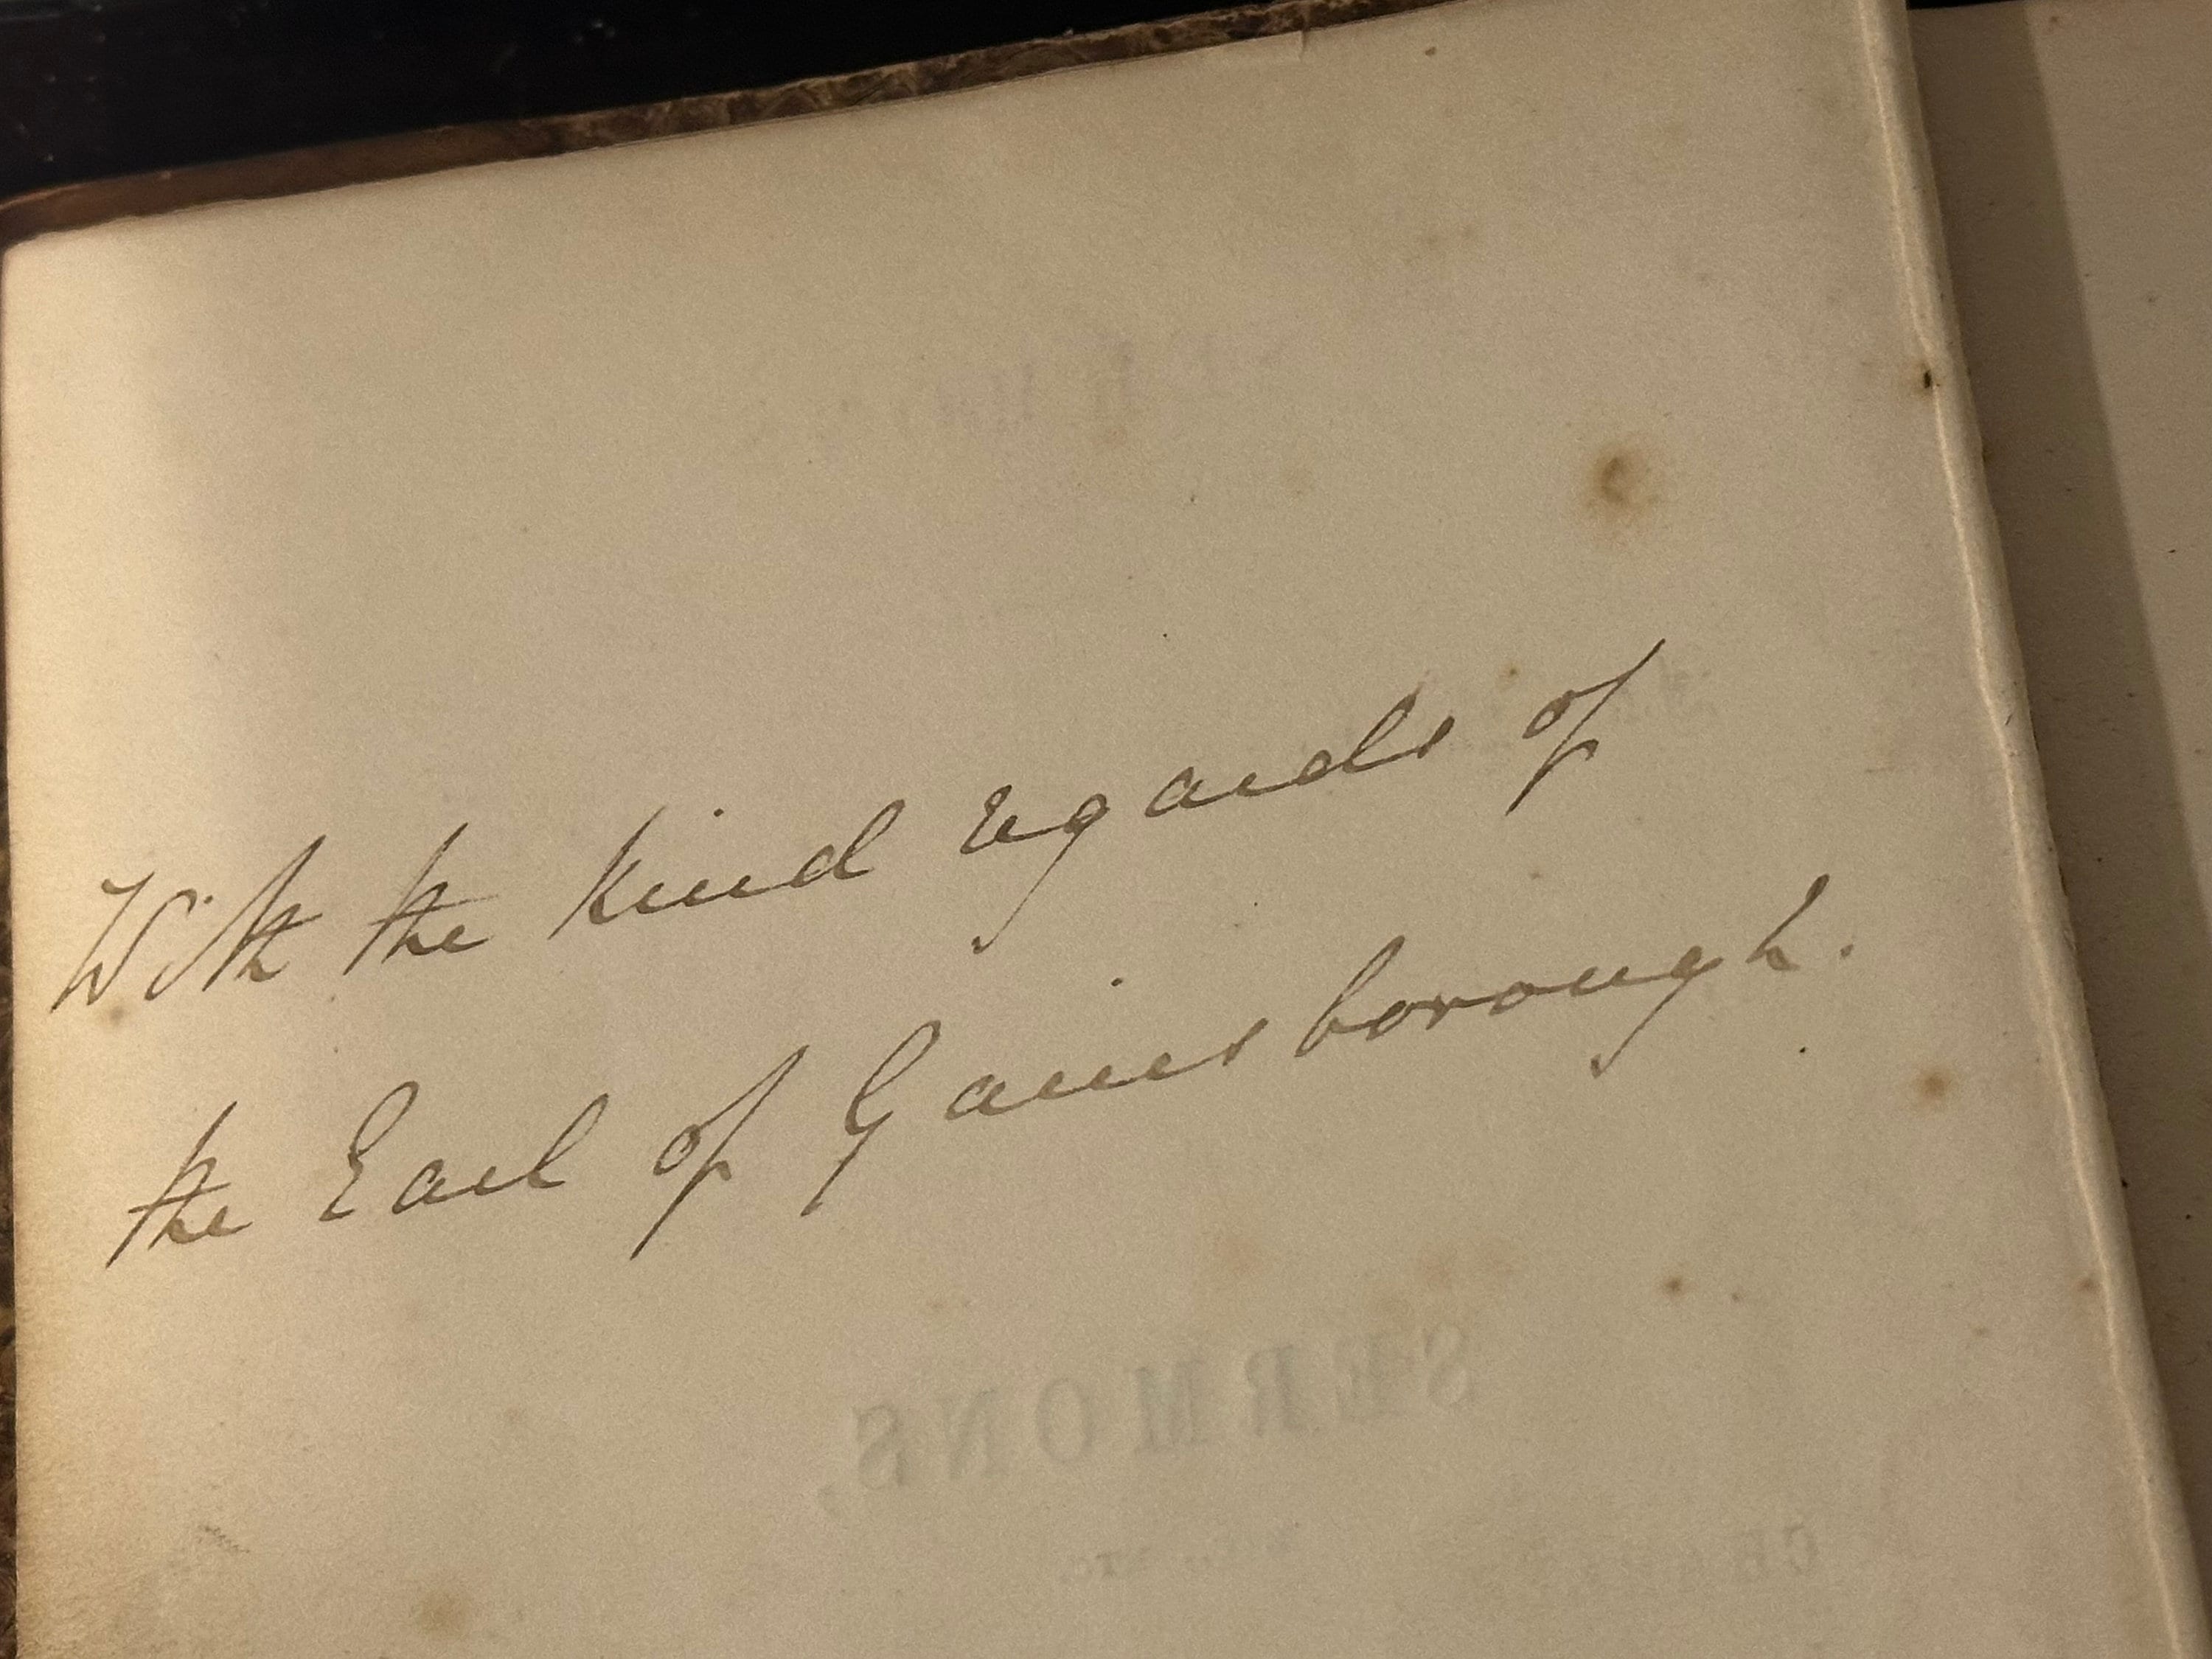 With the kind regards of
the Earl of Gainsborough.
SERMONS,